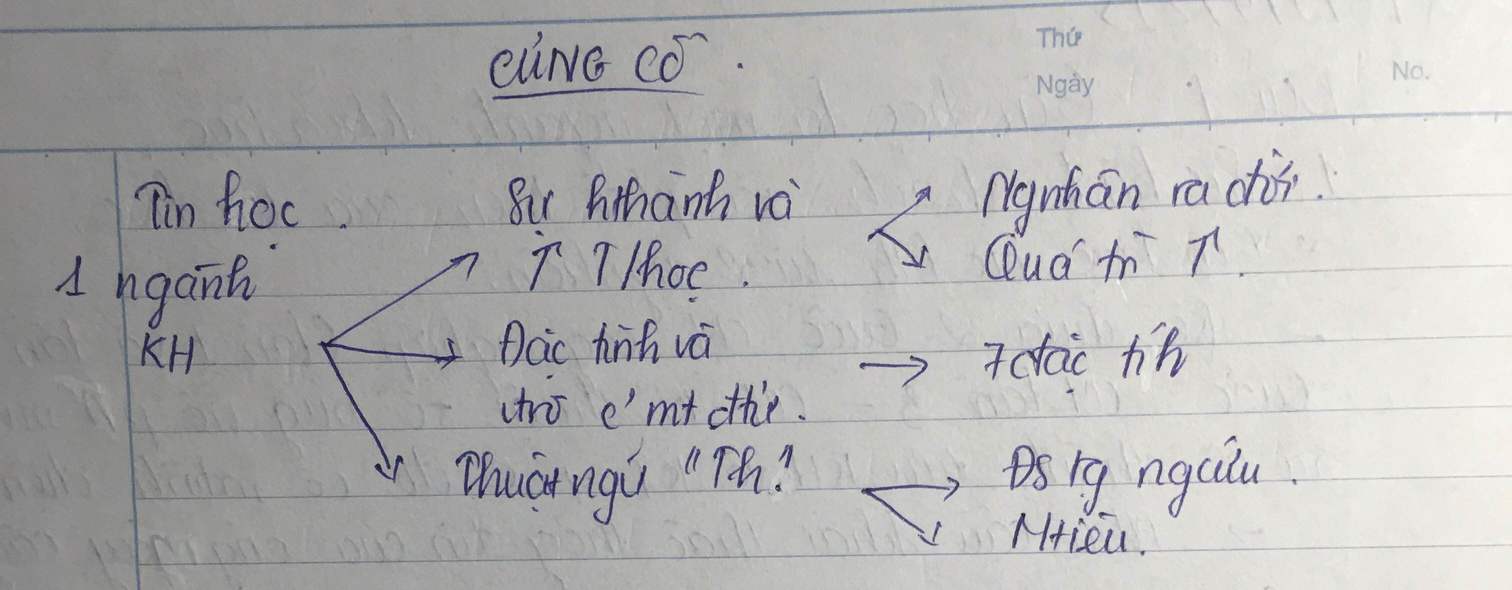 CỦNG CỐ.
Thứ
Ngày
No.
Tin học. Sự hthành và Ngnhân ra đời.
1 ngành ↑ T/học. Quá trì ↑.
KH Đặc tính và 7 đặc tính
trò c' mt đtử.
Thuật ngữ "Th." ĐS tg ngcứu.
Mtiêu.